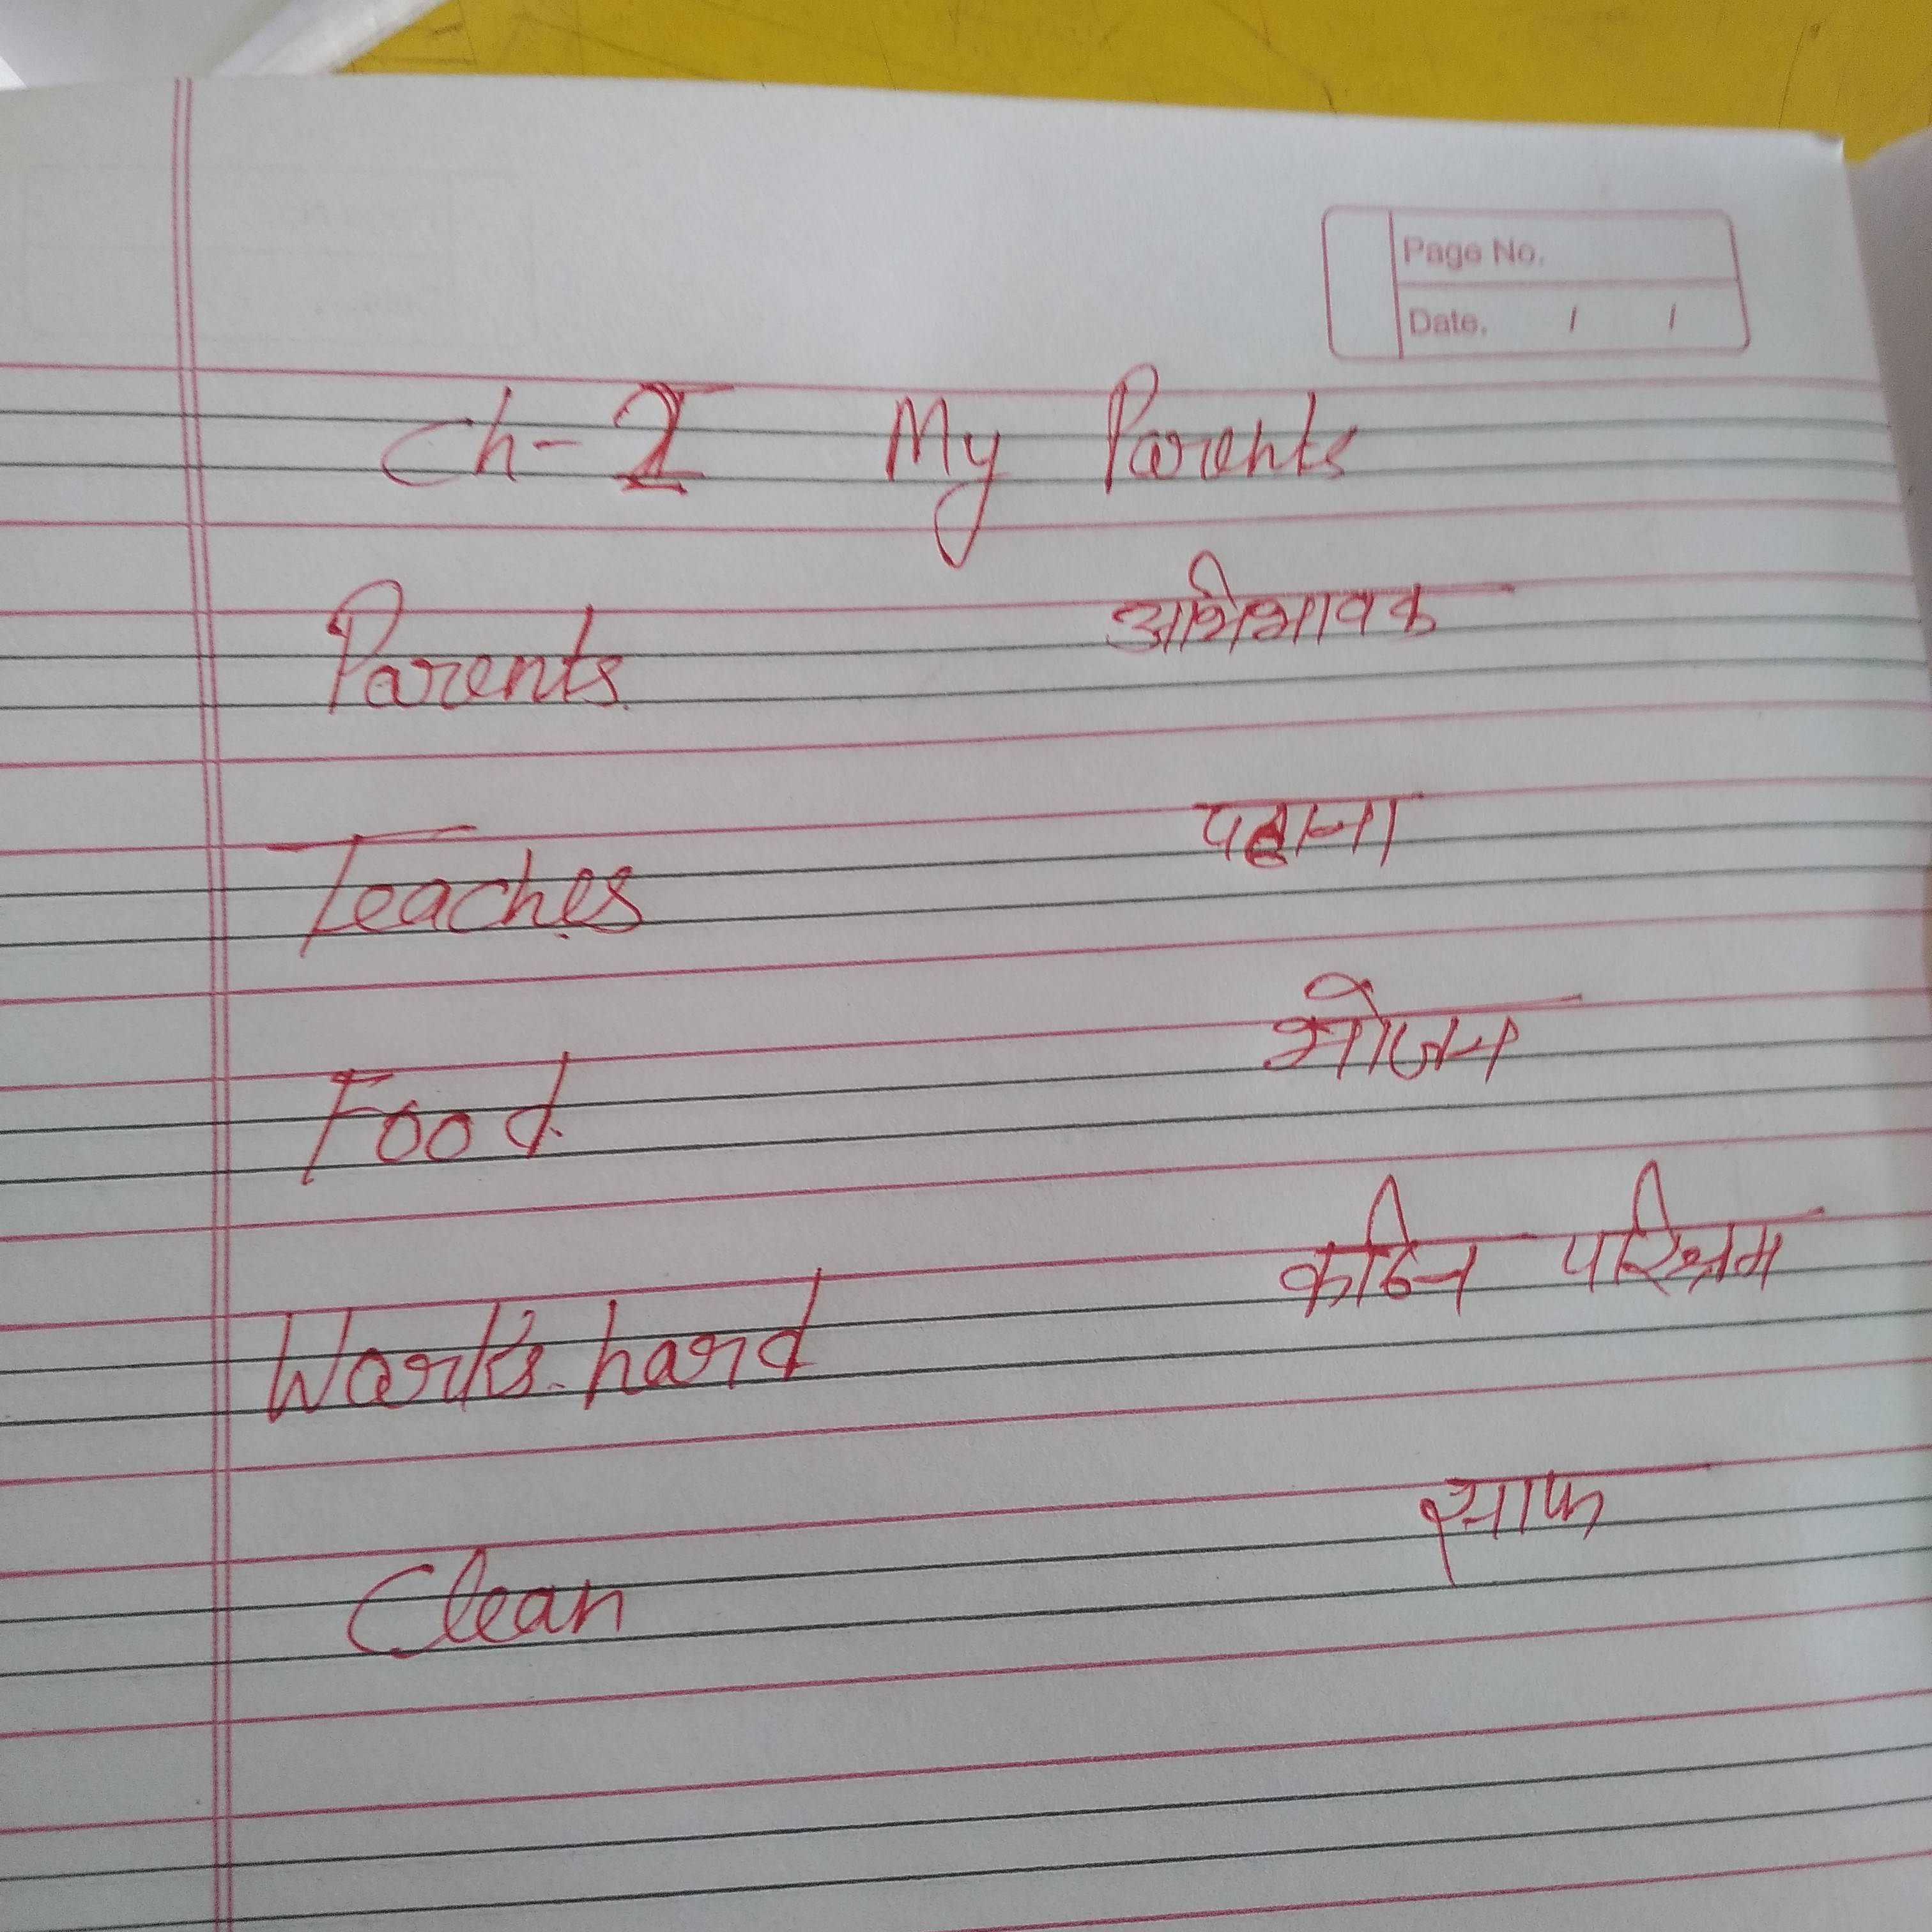 Page No.
Date. / /
Ch-2 My Parents
Parents. अभिभावक
Teaches पढ़ाना
Food. भोजन
Work's hard कठिन परिश्रम
Clean साफ